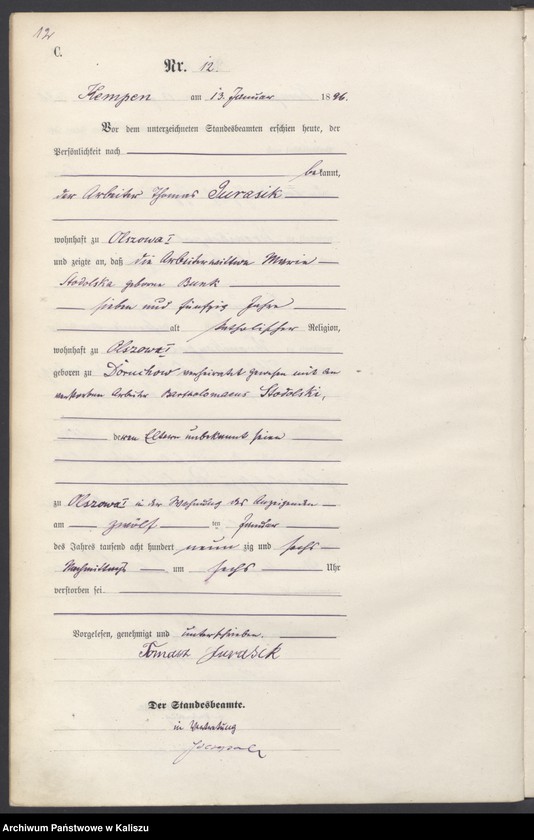 12
C.
Nr. 12.
Kempen am 13. Januar 1896.
Vor dem unterzeichneten Standesbeamten erschien heute, der
Persönlichkeit nach
bekannt,
der Arbeiter Thomas Jurasik
wohnhaft zu Olszowa I
und zeigte an, daß die Arbeiterwittwe Marie
Stodolska geborne Bank
sieben und fünfzig Jahre
alt katholischer Religion,
wohnhaft zu Olszowa I
geboren zu verheirathet gewesen mit dem
verstorbenen Arbeiter Bartholomaeus Stodolski,
deren Eltern unbekannt seien
zu Olszowa I in der Wohnung des Anzeigenden
am zwölf ten Januar
des Jahres tausend acht hundert neun zig und sechs
Nachmittags um sechs Uhr
verstorben sei.
Vorgelesen, genehmigt und unterschrieben.
Tomasz Jurasik
Der Standesbeamte.
in Vertretung
Archiwum Państwowe w Kaliszu